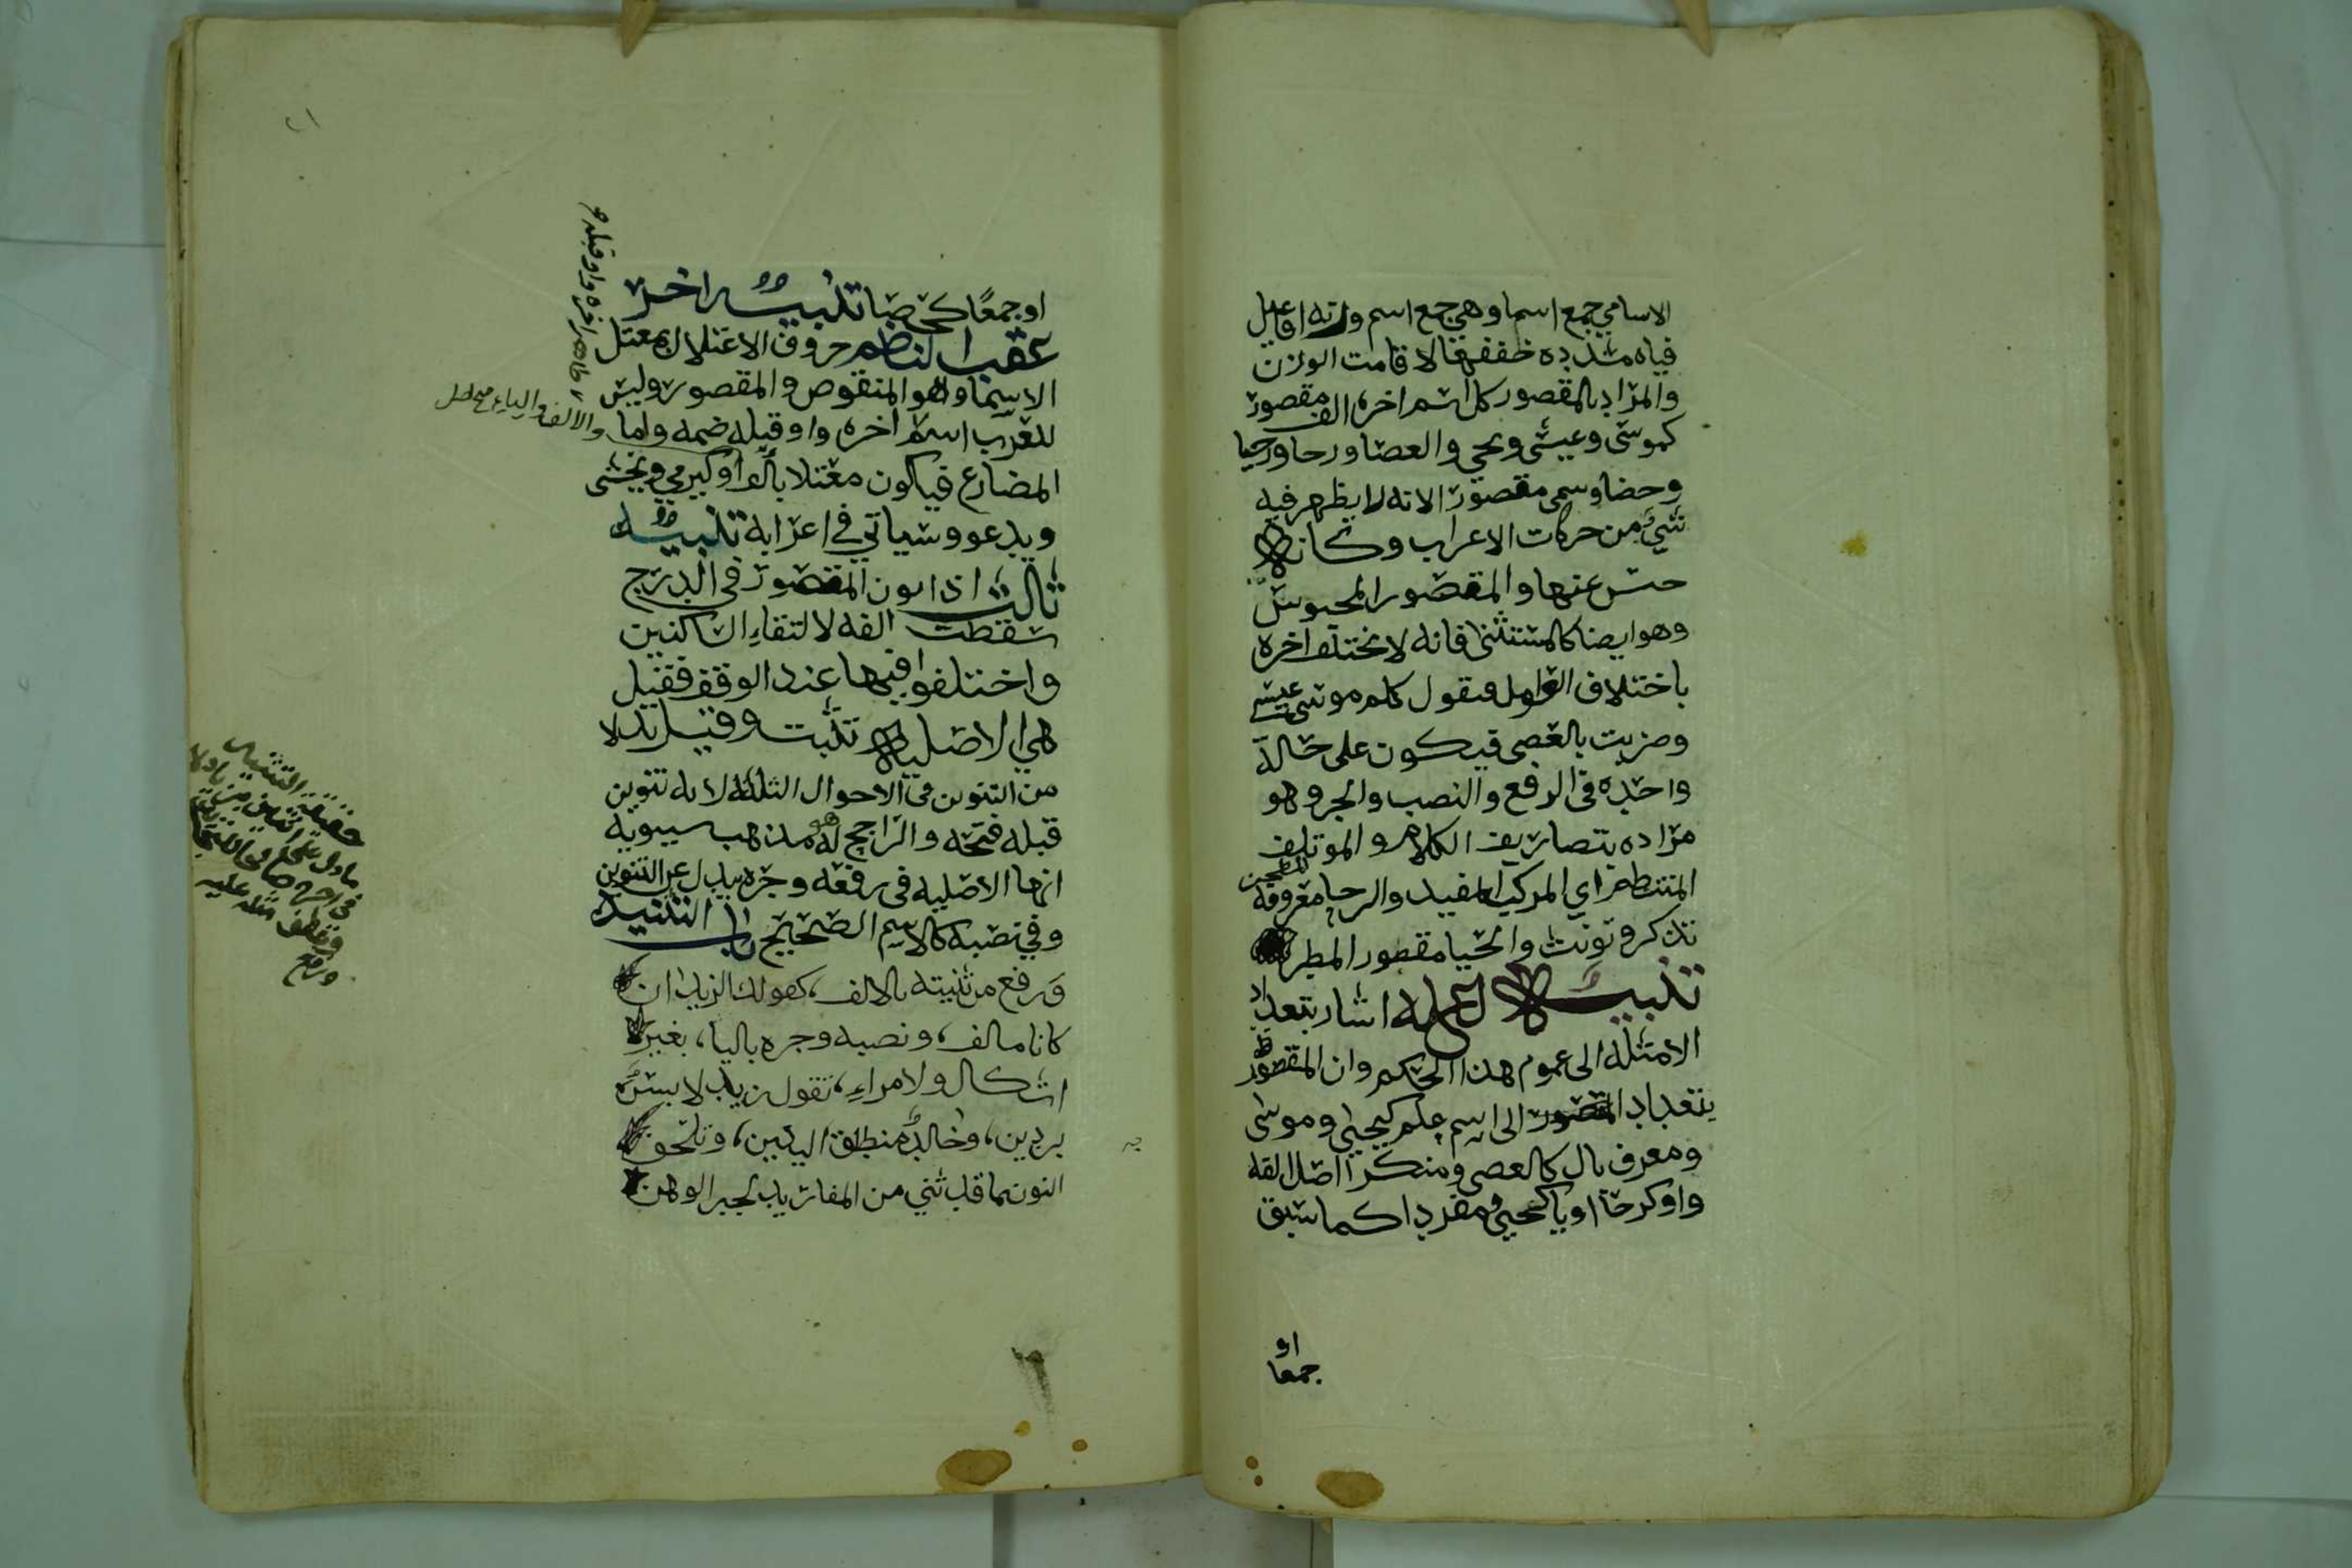 الاسامي جمع اسما وهي جمع اسم وزنه افاعيل
فياه مشدده خففها لاقامت الوزن
والمراد بالمقصور كل اسم اخره الف مقصور
كموسى وعيسى ويحي والعصا ورحا وحيا
وحصا وسمى مقصورا لانه لا يظهر فيه
شيء من حركات الاعراب وكانه
حبس عنها والمقصور المحبوس
وهو ايضا كالمستثنى فانه لا يختلف اخره
باختلاف العوامل فتقول كلم موسى عيسى
وضربت بالعصى فيكون على حالة
واحده في الرفع والنصب والجر وهو
مراده بتصاريف الكلام والموتلف
المنتظم اي المركب المفيد والرحا معروفة للطحن
تذكر وتونث والحيا مقصور المطر
تنبيه لعله اشار بتعداد
الامثلة الى عموم هذا الحكم وان المقصور
بتعداد المقصور الى اسم علم كيحيى وموسى
ومعرف بال كالعصى ومنكرا اصل الفه
واو كرحا او يا كحيى ومفردا كما سبق
او
جمعا
او جمعًا كحصا تنبيه اخر
عقب الناظم حروف الاعتلال بمعتل
الاسما وهو المنقوص والمقصور وليس
للعرب اسم اخره واو قبله ضمه واما
المضارع فيكون معتلا بالواو كيرمي ويخشى
ويدعو وسياتي في اعرابه تنبيه
ثالث اذا نون المقصور في الدرج
سقطت الفه لالتقاء الساكنين
واختلفوا فيها عند الوقف فقيل
هي الاصليه تثبت وقيل بدلا
من التنوين في الاحوال الثلاثة لانه تنوين
قبله فتحه والراجح هو مذهب سيبويه
انها الاصليه في رفعه وجره بدل عن التنوين
وفي نصبه كالاسم الصحيح باب التثنيه
ورفع من ثنيته بالالف، كقولك الزيدان
كانا مالف، ونصبه وجره باليا، بغير
اشكال ولا مراء، تقول زيد لابس
بردين، وخالد منطلق اليدين، وتلحق
النون بما قد ثني من المفاريد لجبر الوهن
ظاهر اخره واو قبلها
والالف والياء صح اصل
حقيقة التثنيه